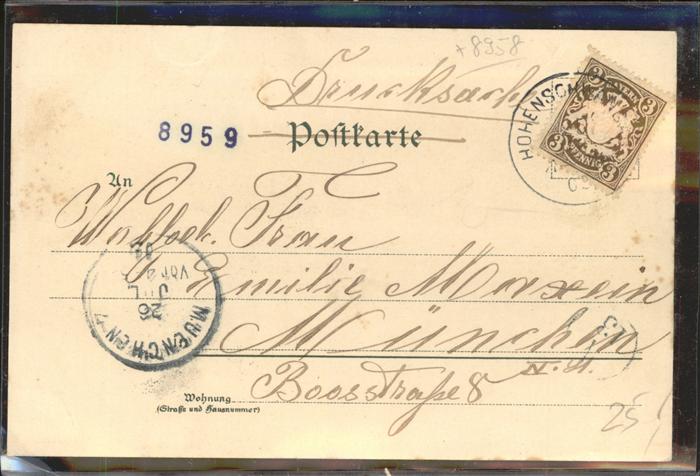 +8958
Drucksache
8959
Postkarte
HOHENSCHWAN
3 3
BAYERN
3 PFENNIG 3
An
Wohlgeb. Frau
Emilie
München
Boosstraße 8
MUENCHEN
26
JUL
VOR
03
Wohnung
(Straße und Hausnummer)
25